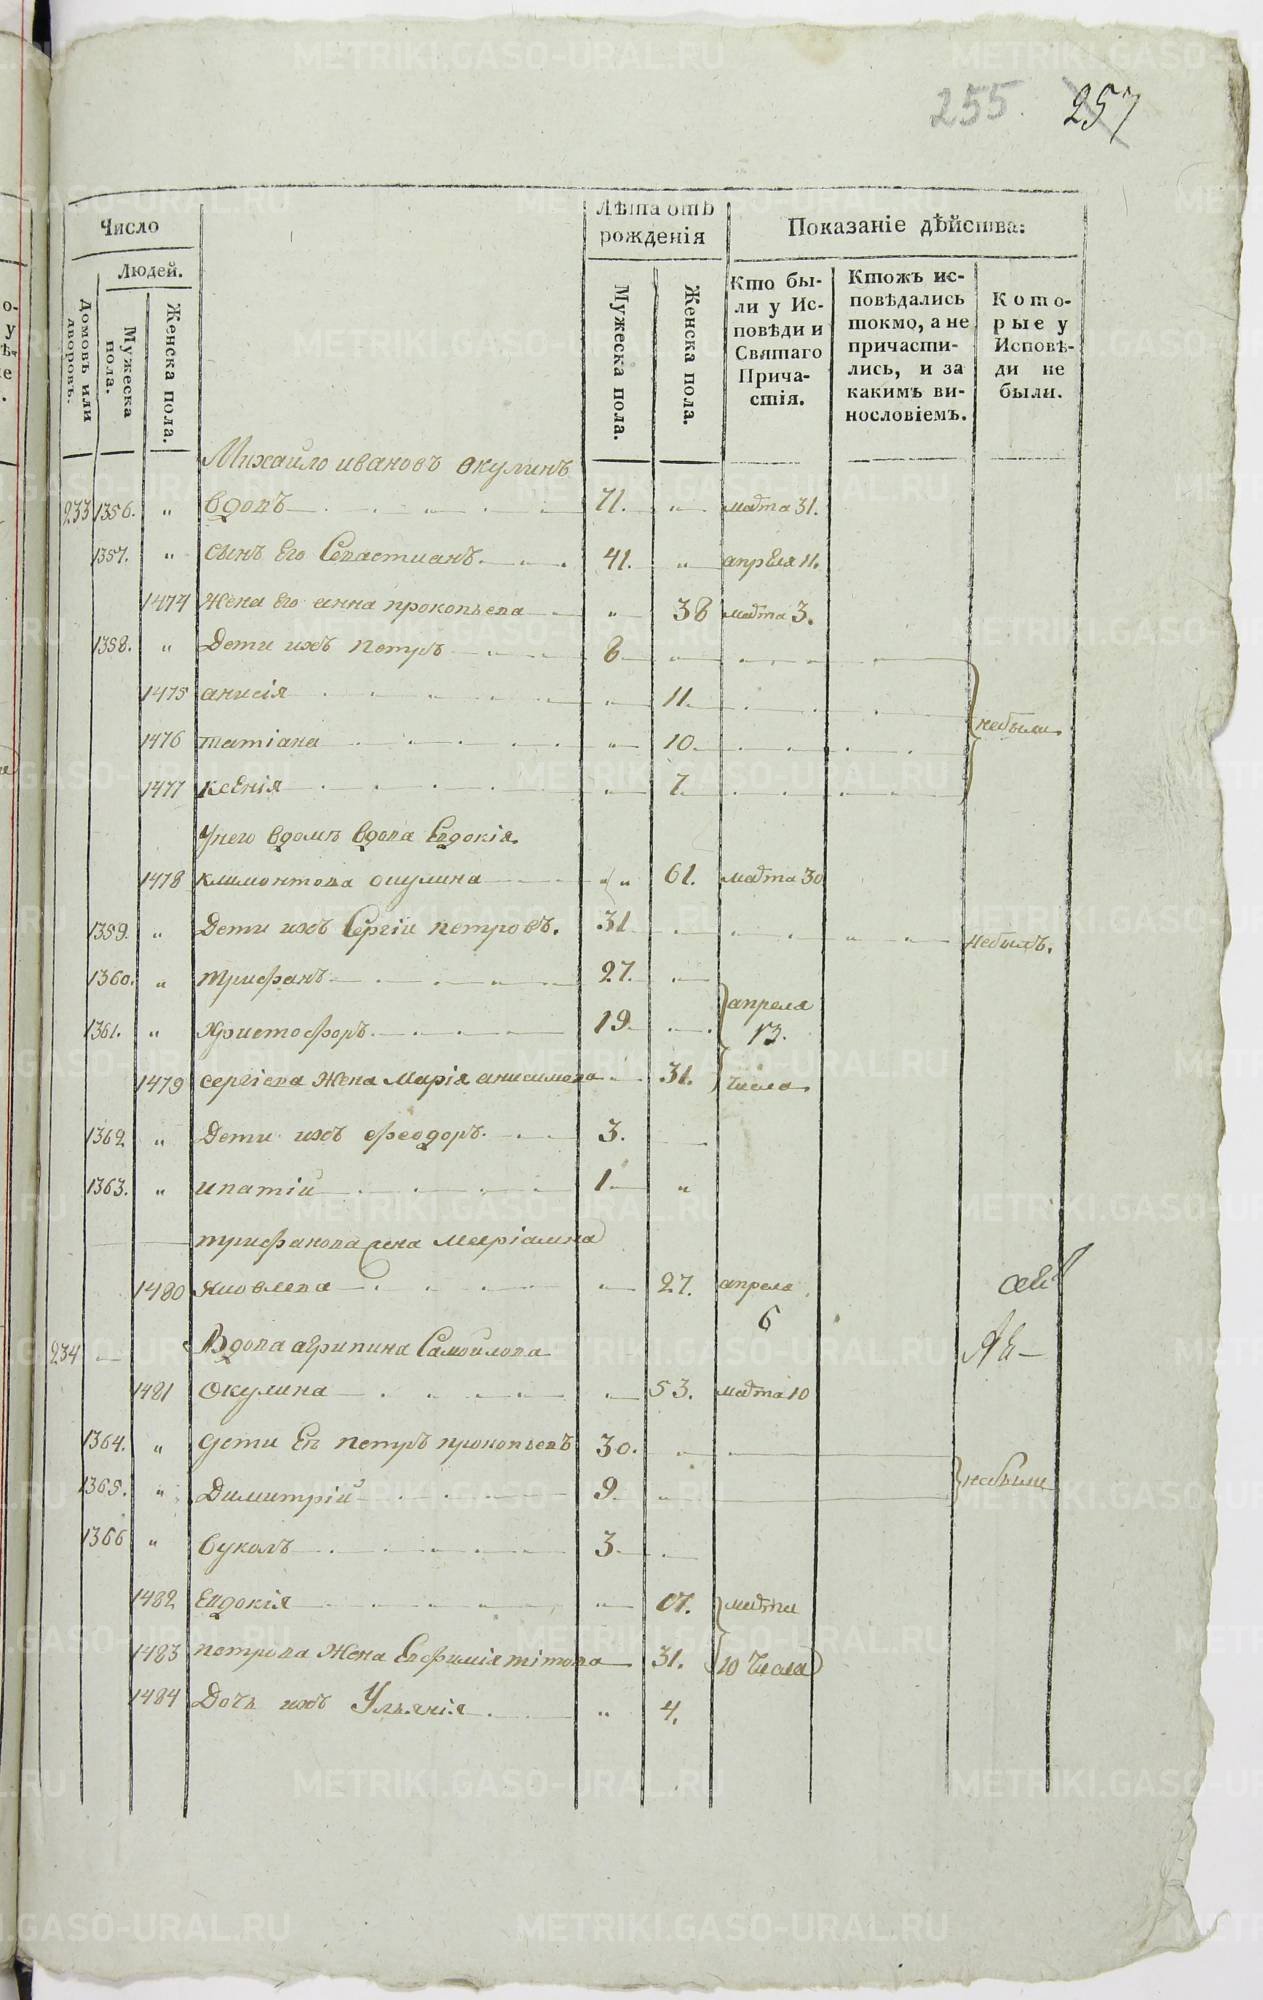 255. 257
Число
Людей.
Домовъ или дворовъ.
Мужеска пола.
Женска пола.
Лѣта отъ рожденія
Мужеска пола.
Женска пола.
Показаніе дѣйства:
Кто были у Исповѣди и Святаго Причастія.
Ктожъ исповѣдались токмо, а не причастились, и за какимъ винословіемъ.
Которые у Исповѣди не были.
Михайло ивановъ окулинъ
233 1356. " вдовъ 71. " марта 31.
1357. " сынъ Его Севастианъ 41. " апреля 11.
1474 жена Его анна прокопьева " 38 марта 3.
1358. " Дети ихъ петръ 8 "
1475 анисія " 11.
1476 татіана " 10.
небыли
1477 ксенія " 7.
Унего вдомѣ вдова Евдокія
1478 климонтова окулина " " 61. марта 30
1359. " Дети ихъ Сергіи петровъ. 31
небылъ.
1360. " трифанъ 27.
1361. " Христофоръ 19.
апреля 13. числа
1479 сергіева жена Марія анисимова 31.
1362 " Дети ихъ феодоръ 3.
1363. " ипатій 1 "
трифанова жена Маріамна
1480 яковлева " 27. апреля 6
234 Вдова агрипина Самоилова
1481 Окулина " 53. марта 10
1364. " дети Ея петръ прокопьевъ 30.
1365. " Димитрій 9. "
небыли
1366 " вуколъ 3
1482 Евдокія " 17.
марта 10 числа
1483 петрова жена Евфимія тітова 31.
1484 Дочь ихъ Ульянія " 4.
METRIKI.GASO-URAL.RU